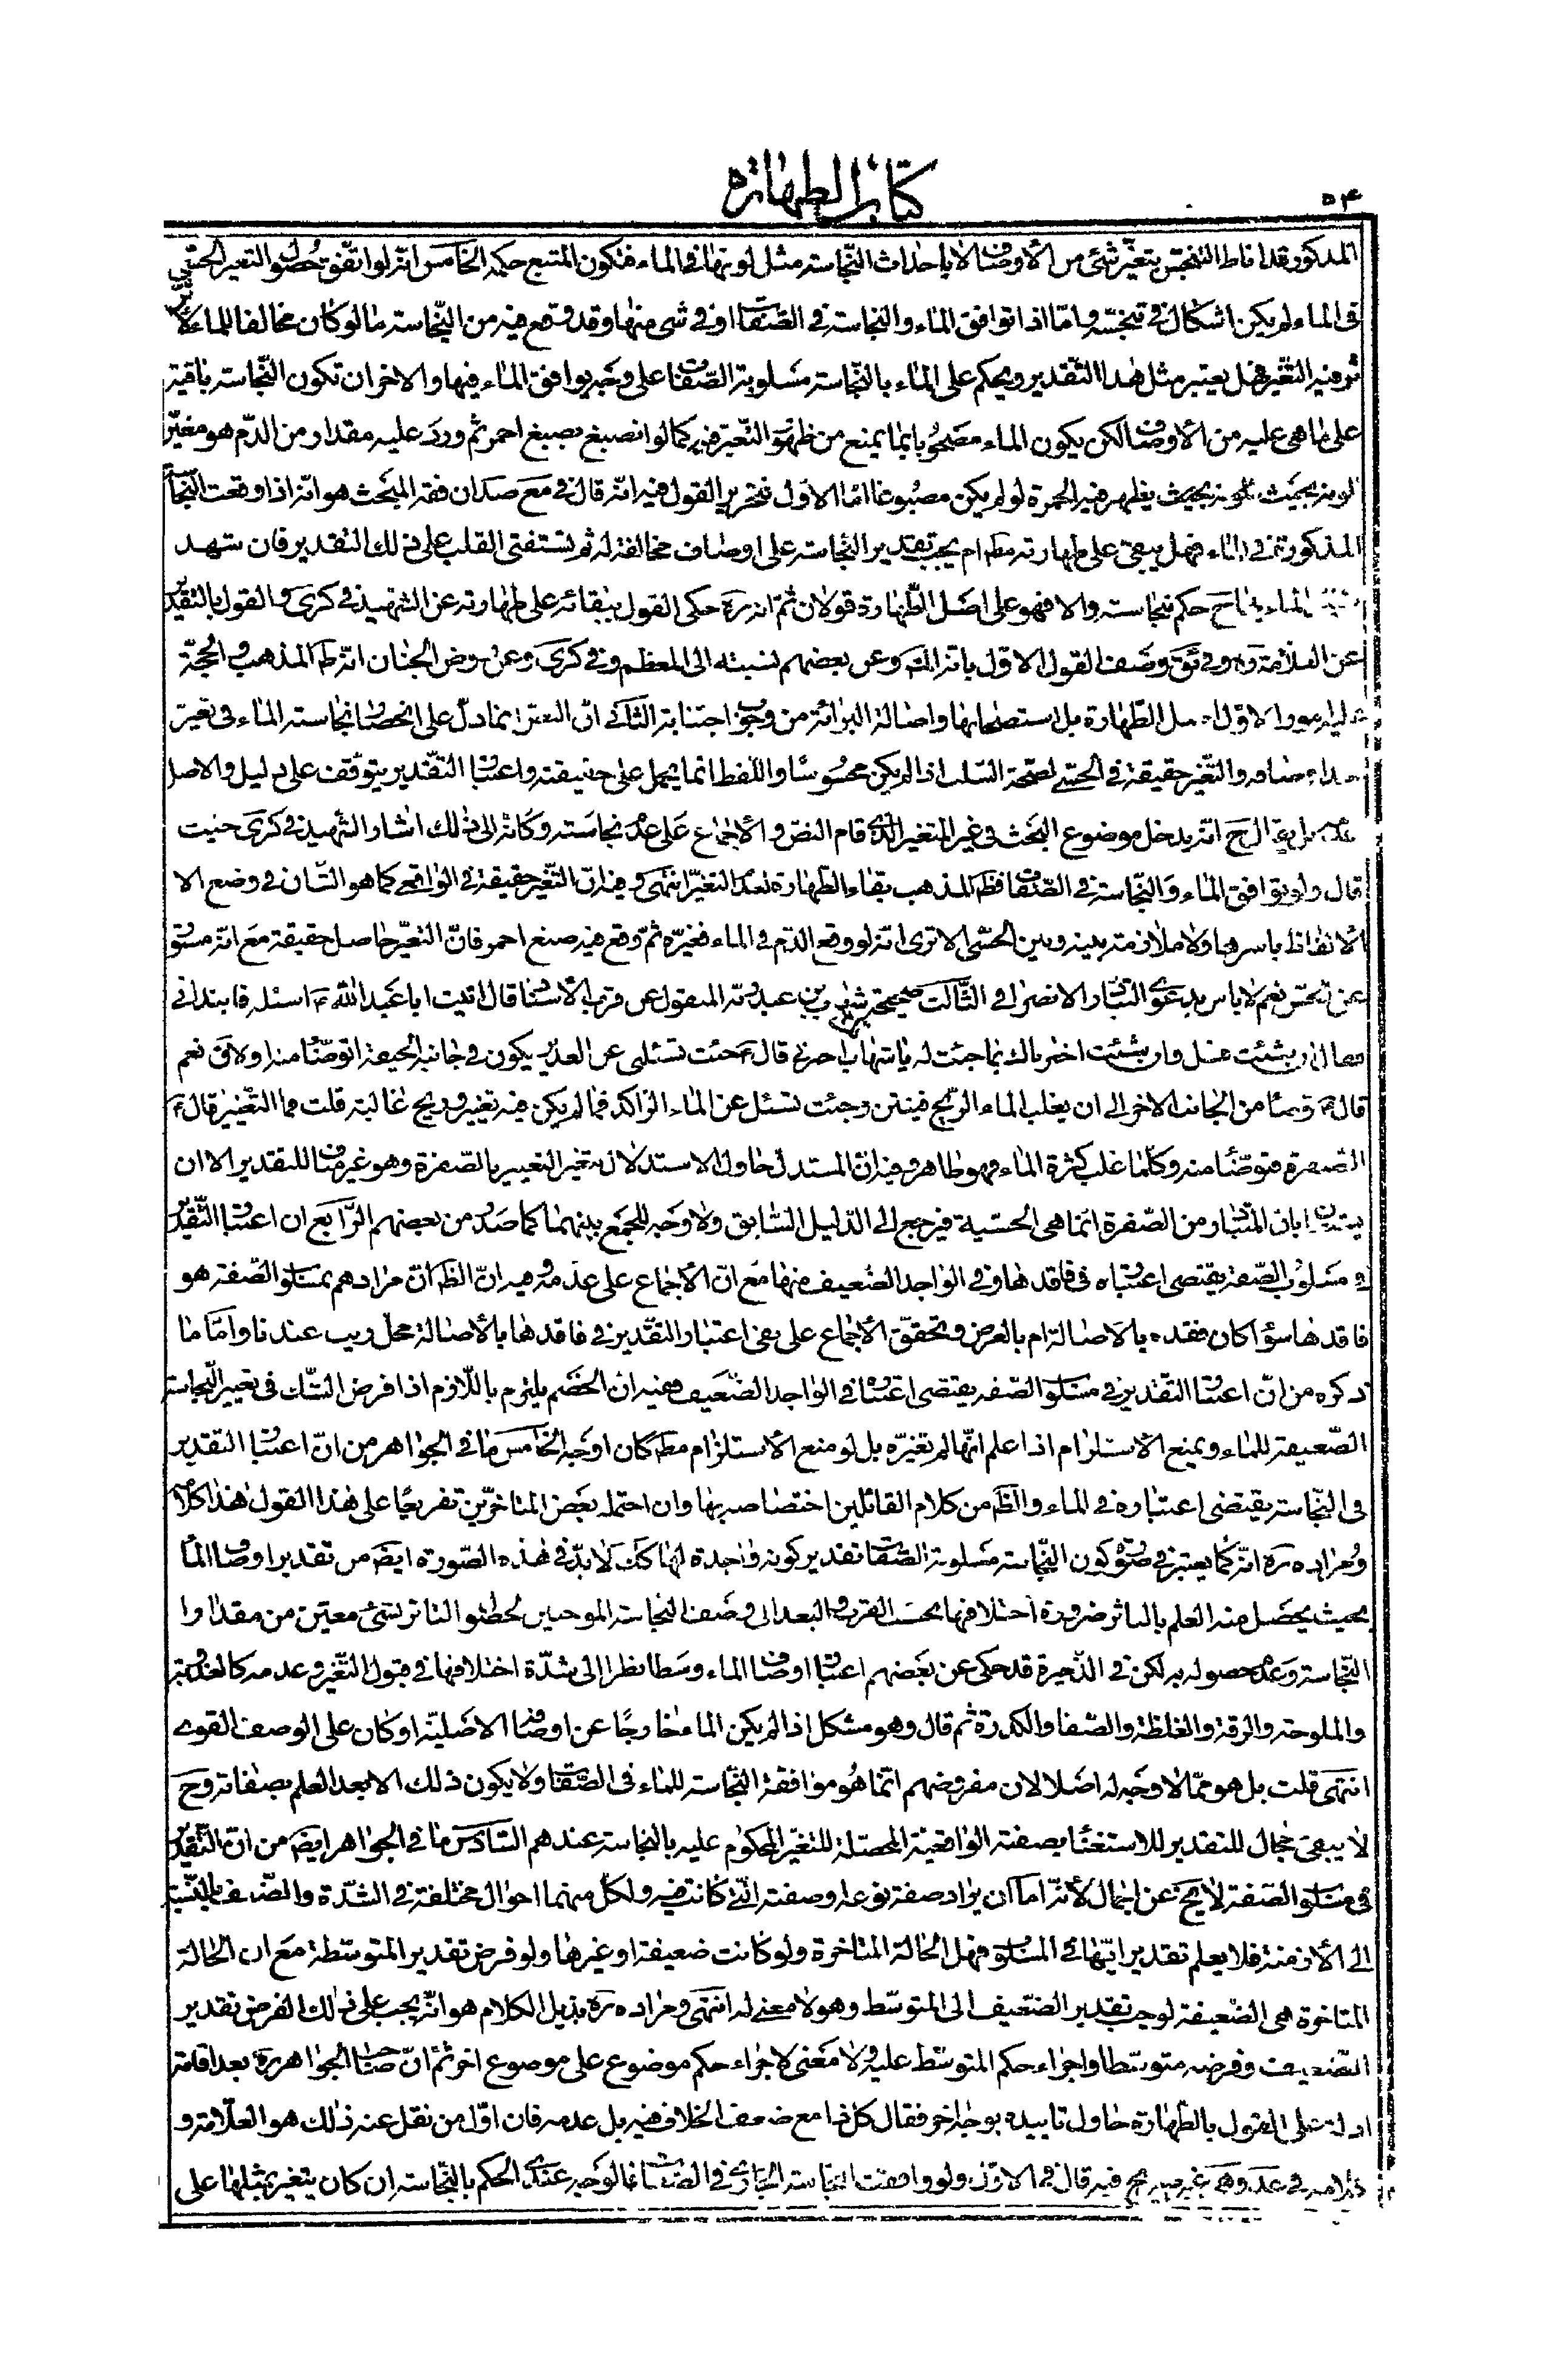 ۵۴
كتاب الطهارة
المذكور قد اناط التنجس بتغيّر شئ من الأوصاف لا باحداث النّجاسة مثل لونها في الماء فتكون المتبع حكمه الخامس انّه لو اتّفق حصول التغير الحسّي
في الماء لم يكن اشكال في تنجسه وامّا اذا توافق الماء والنجاسة في الصّفات او في شئ منها وقد وقع فيه من النّجاسة ما لو كان مخالفا للماء لأثّر
ثر فيه التغيّر فهل يعتبر مثل هذا التّقدير ويحكم على الماء بالنّجاسة مسلوبة الصّفات على وجه يوافق الماء فيها والاخر ان تكون النّجاسة باقية
على ما هي عليه من الأوصاف لكن يكون الماء مصحوبا بما يمنع من ظهور التغيّر فيه كما لو انصبغ بصبغ احمر ثم ورد عليه مقدار من الدّم هو مغيّر
لونه بحيث يظهر فيه الحمرة لو لم يكن مصبوغا امّا الاوّل فتحرير القول فيه انّه قال في مع صد ان فقه المبحث هو انّه اذا وقعت النّجاسة
المذكورة في الماء فهل يبقى على طهارته مط ام يجب تقدير النّجاسة على اوصاف مخالفة له ثم تستفتى القلب على ذلك التقدير فان شهد
الماء ح حكم بنجاسته والا فهو على اصل الطّهارة قولان ثمّ انه ره حكى القول ببقائه على طهارته عن الشهيد في كرى والقول بالتقدير
عن العلّامة ره وفي ئق وصف القول الاوّل بانّه المش وعن بعضهم نسبته الى المعظم وفي كرى وعن روض الجنان انّه ظ المذهب والحجّة
عليه امور الاوّل اصل الطّهارة بل استصحابها واصالة البرائة من وجوب اجتنابه الثّاني انّ المعتبر انما دلّ على انحصار نجاسة الماء في تغيّر
اوصافه والتّغيّر حقيقة في الحسّي لصحّة السّلب اذا لم يكن محسوسا واللّفظ انما يحمل على حقيقته واعتبار التقدير يتوقّف على دليل والاصل
عدمه ح انّه يدخل موضوع البحث في غير المتغير الّذي قام النصّ والأجماع على عدم نجاسته وكانه الى ذلك اشار الشّهيد في كرى حيث
قال ولو توافق الماء والنّجاسة في الصّفات فظ المذهب بقاء الطّهارة لعدم التغيّر انتهى وفيه انّ التّغيّر حقيقة في الواقعي كما هو الشّان في وضع الا
الألفاظ باسرها ولا ملازمة بينه وبين الحسّي الا ترى انّه لو وقع الدّم في الماء فغيّره ثمّ وقع فيه صبغ احمر فانّ التغيّر حاصل حقيقة مع انّه مستور
عن الحسّ نعم لا باس بدعوى التبادر الانصرافي الثّالث صحيحة شهاب بن عبد ربّه المنقول عن قرب الأسناد قال اتيت ابا عبد الله ع اسئله فابتدانى
فقال ان شئت فسل وان شئت اخبرناك بما جئت له يا شهاب اخبرني قال ع جئت تسئلني عن الغدير يكون في جانبه الجيفة اتوضّأ منه اولا ق نعم
قال ع توضّأ من الجانب الاخر الى ان يغلب الماء الرّيح فينتن وجئت تسئل عن الماء الرّاكد فما لم يكن فيه تغيير وريح غالبة قلت فما التّغيير قال ع
الصّفرة فتوضّأ منه وكلّما غلب كثرة الماء فهو طاهر وفيه انّ المستدل حاول الاستدلال بتفسير التغيير بالصّفرة وهو غير مناف للتقدير الا ان
يتمّ بان المتبادر من الصّفرة انّما هي الحسّية فيرجع الى الدّليل السّابق ولا وجه للجمع بينهما كما صدر من بعضهم الرّابع ان اعتبار التّقدير
في مسلوب الصّفة يقتضى اعتباره في فاقدها وفي الواجد الضّعيف منها مع انّ الأجماع على عدمه وفيه انّ الظ انّ مرادهم بمسلوب الصّفة هو
فاقدها سواء كان فقده بالاصالة ام بالعرض وتحقّق الأجماع على نفي اعتبار التقدير في فاقدها بالأصالة محلّ ريب عندنا وامّا ما
ذكره من انّ اعتبار التّقدير في مسلوب الصّفة يقتضى اعتباره في الواجد الضّعيف ففيه ان الخصم يلتزم باللّازم اذا فرض الشّك في تغيير النّجاسة
الضّعيفة للماء ويمنع الأستلزام اذا علم انّها لم تغيّره بل لو منع الأستلزام مط كان اوجه الخامس ما في الجواهر من انّ اعتبار التقدير
في النّجاسة يقتضى اعتباره في الماء والظ من كلام القائلين اختصاصه بها وان احتمله بعض المتاخّرين تفريعًا على هذا القول هذا كلامه
ومراده ره انّه كما يعتبر في صورة كون النّجاسة مسلوبة الصّفات تقدير كونه واجدة لها كك لا بدّ في هذه الصّورة ايض من تقدير اوصاف الماء
بحيث يحصل منه العلم بالتاثر ضرورة اختلافها بحسب القرب والبعد الى وصف النّجاسة الموجبين لحصول التاثر بشئ معيّن من مقدار
النّجاسة وعدم حصوله به لكن في الذّخيرة قد حكى عن بعضهم اعتبار اوصاف الماء وسطا نظرا الى شدّة اختلافها في قبول التّغيّر وعدمه كالعذوبة
والملوحة والرقة والغلظة والصّفا والكدرة ثم قال وهو مشكل اذا لم يكن الماء خارجًا عن اوصافه الاصليّة او كان على الوصف القوى
انتهى قلت بل هو ممّا لا وجه له اصلا لان مفروضهم انّما هو موافقة النّجاسة للماء في الصّفات ولا يكون ذلك الا بعد العلم بصفاته وح
لا يبقى مجال للتقدير للاستغناء بصفته الواقعيّة المحصّلة للتغيّر المحكوم عليه بالنجاسة عندهم السّادس ما في الجواهر ايض من انّ التّقدير
في مسلوب الصّفة لا يخ عن اجمال لأنّه امّا ان يراد صفة نوعه او صفته الّتي كانت فيه ولكلّ منهما احوال مختلفة في الشّدّة والضّعف بالنّسبة
الى الأزمنة فلا يعلم تقدير ايّها في المسلوب فهل الحالة المتاخرة ولو كانت ضعيفة او غيرها ولو فرض تقدير المتوسّطة مع ان الحالة
المتاخرة هى الضّعيفة لوجب تقدير الضّعيف الى المتوسّط وهو لا معنى له انتهى ومراده ره بذيل الكلام هو انّه يجب على ذلك الفرض تقدير
الضّعيف وفرضه متوسّطا واجراء حكم المتوسّط عليه ولا معنى لاجراء حكم موضوع على موضوع اخر ثم انّ صاحب الجواهر ره بعد اقامة
ادلة على القول بالطّهارة حاول تاييده بوجه اخر فقال كل ذا مع ضعف الخلاف فيه بل عدمه فان اوّل من نقل عنه ذلك هو العلّامة و
كلامه في عد وهى غير صريح فيه قال في الاوّل ولو وافقت النّجاسة الجارى في الصّفات فالوجه عندى الحكم بالنّجاسة ان كان يتغير بمثلها على